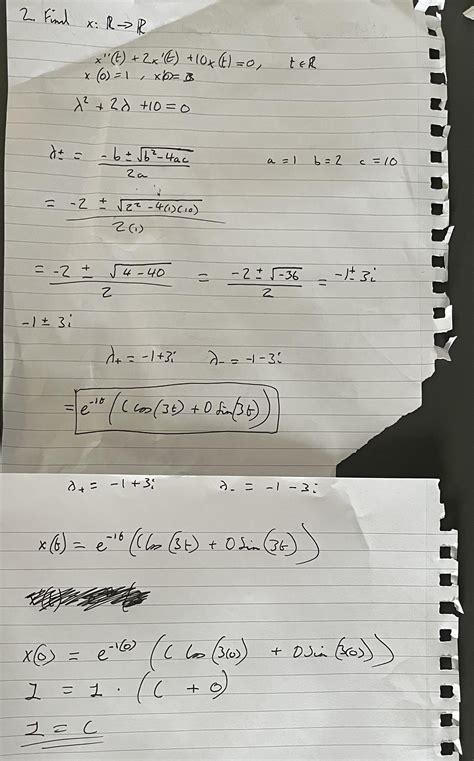 2. Find x: ℝ → ℝ
x''(t) + 2x'(t) + 10x(t) = 0, t ∈ ℝ
x(0) = 1,
λ² + 2λ + 10 = 0
λ± = (-b ± √(b² - 4ac)) / 2a a = 1 b = 2 c = 10
= (-2 ± √(2² - 4(1)(10))) / 2(1)
= (-2 ± √(4 - 40)) / 2 = (-2 ± √(-36)) / 2 = -1 ± 3i
-1 ± 3i
λ₊ = -1+3i λ₋ = -1-3i
= e^(-1t) (C cos(3t) + D sin(3t))
λ₊ = -1+3i λ₋ = -1-3i
x(t) = e^(-1t) (C cos(3t) + D sin(3t))
x(0) = e^(-1(0)) (C cos(3(0)) + D sin(3(0)))
1 = 1 · (C + 0)
1 = C